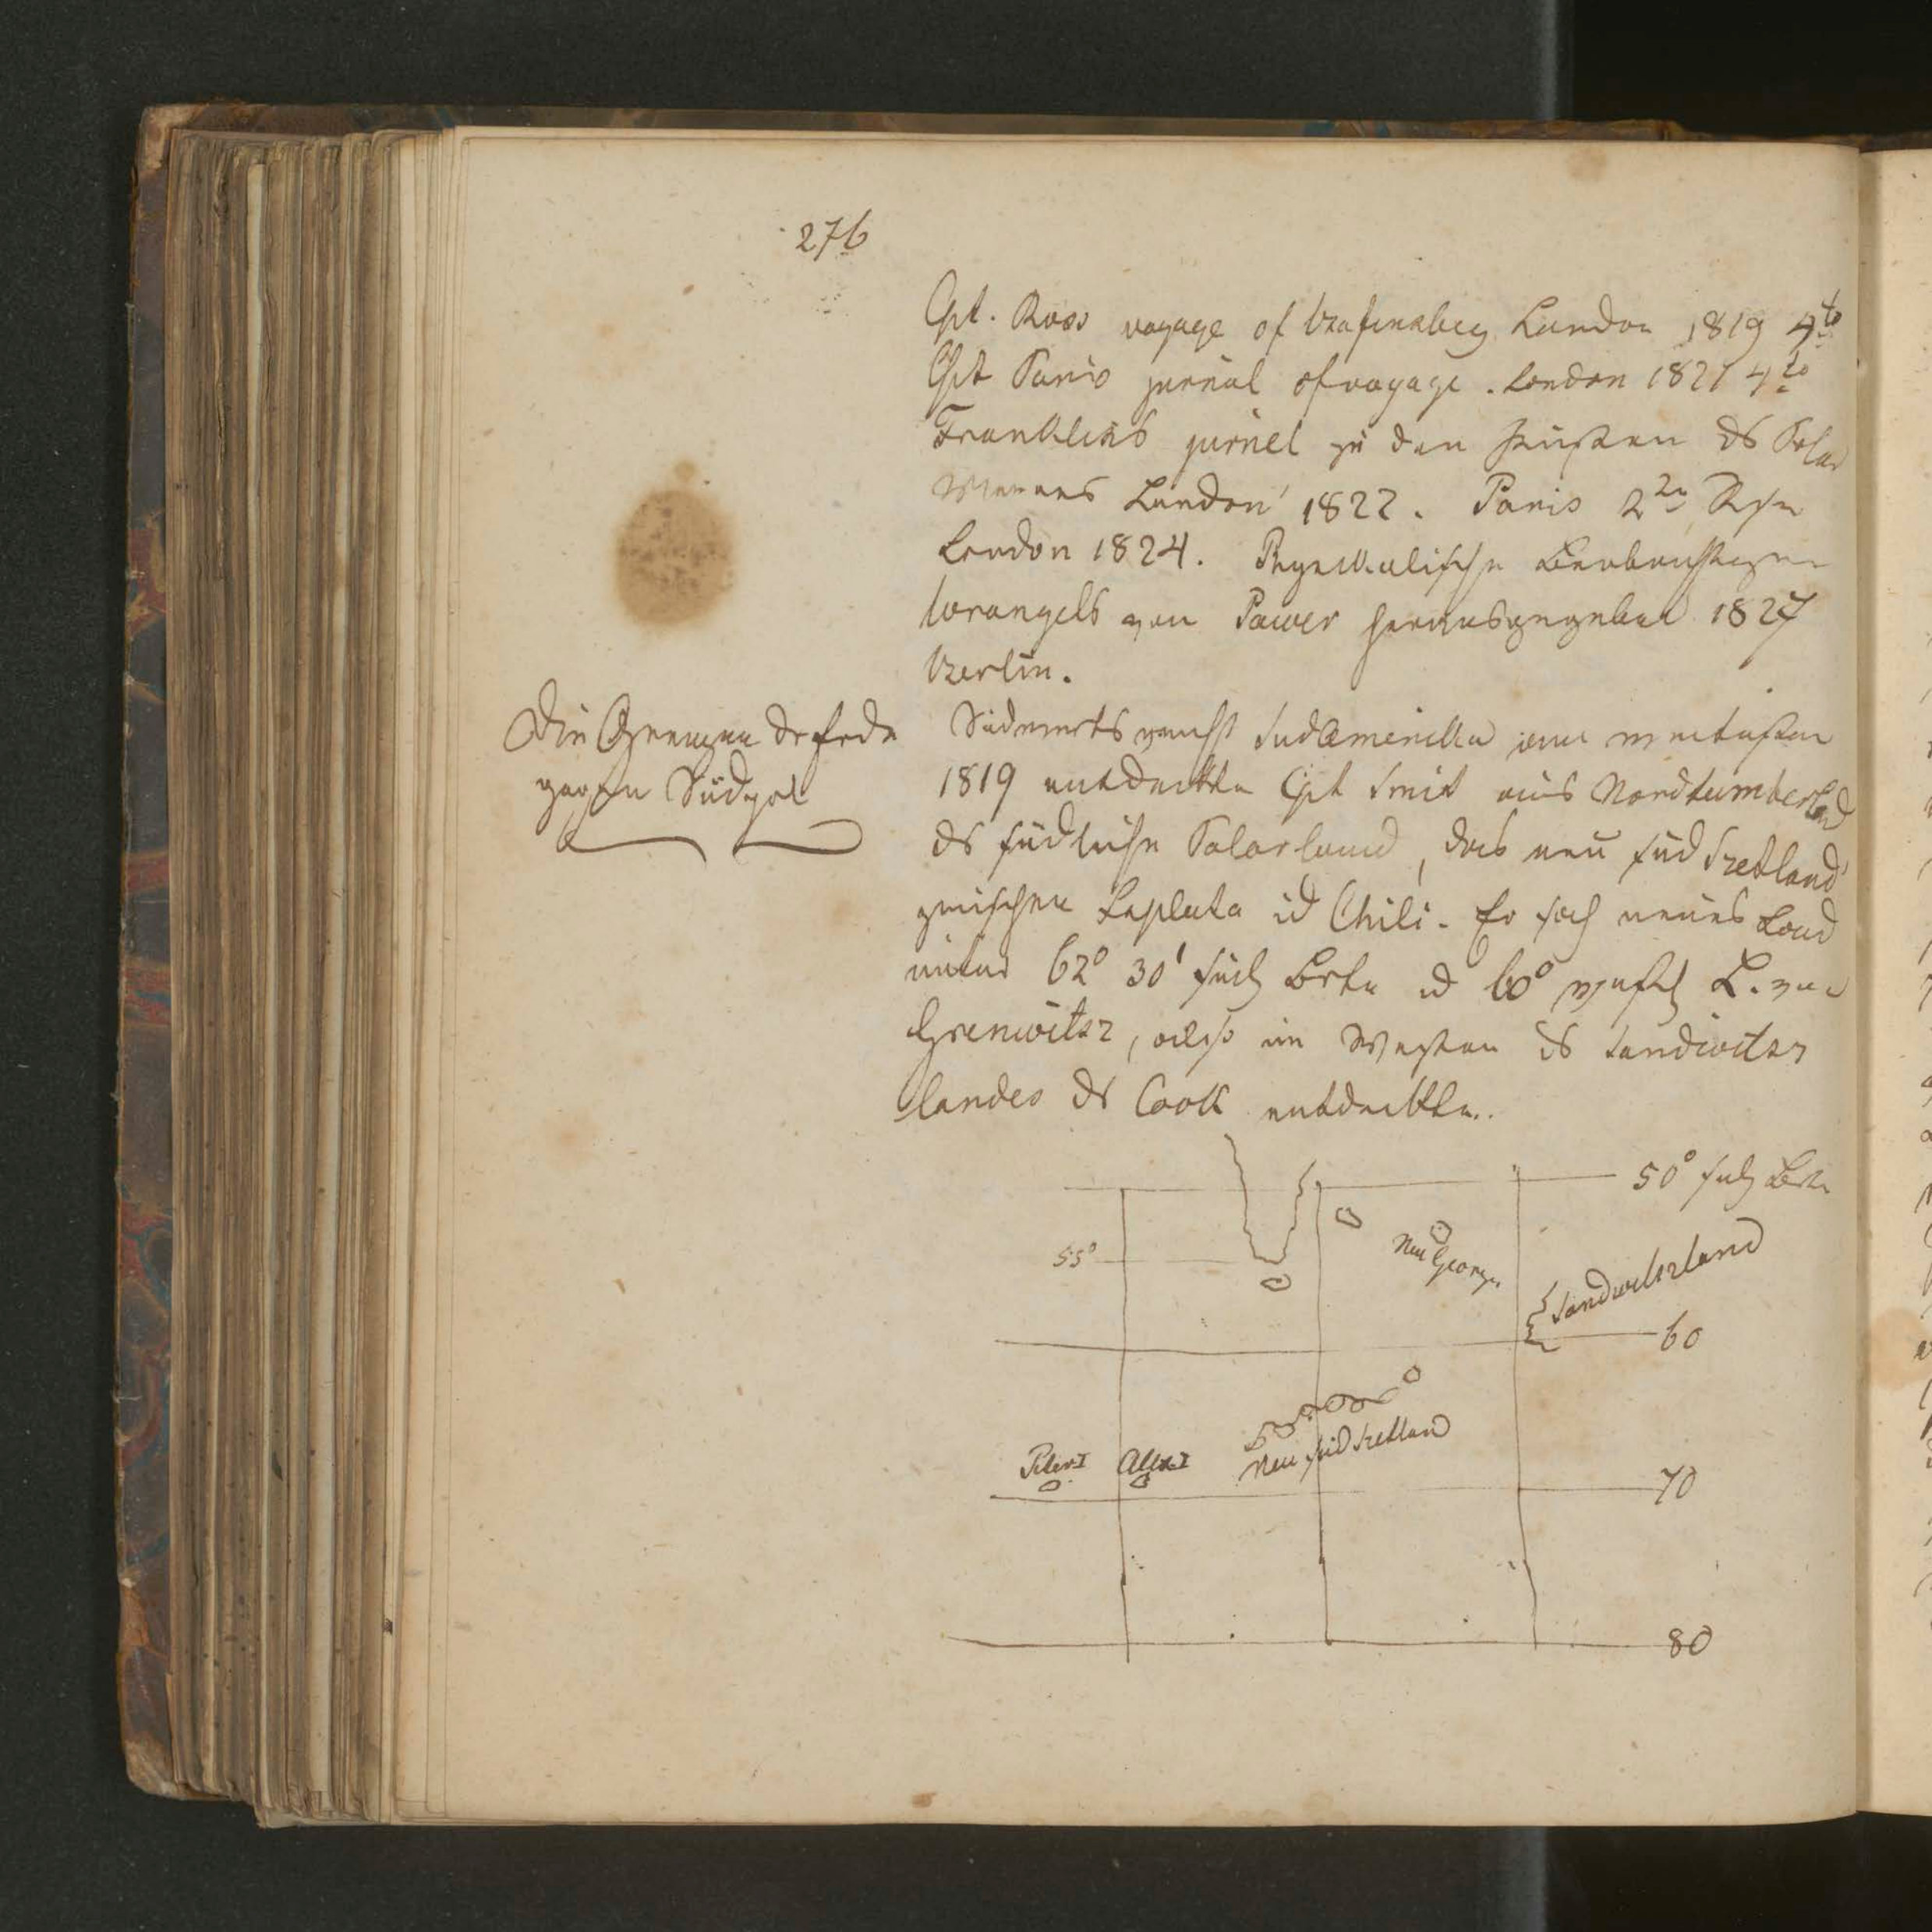 276
Cpt. Ross voyage of Bafinsbey London 1819 4to
Cpt Paris jurnal of voyage. London 1821 4to
Franklins jurnel zu den Küsten ds Polar
Meeres London 1822. Paris 2te Rse
London 1824. Physikalische Beobachtungen
Wrangels von Parver herausgegeben 1827
Berlin.
Die Grenzen dr Erde
gegen Südpol
Südwerts Sudamerika am weitesten
1819 entdeckte Cpt Smit aus Nordtumberland
ds südliche Polarland, das neu süd Szetland
zwischen Laplata ud Chili. Er sah neues Land
unter 62° 30' südl Brte ud 60° westl L. von
Grenwitsz, also im Westen ds Sandwitsz
landes ds Cook entdeckte.
50° sudl Brte
55°
Neu Georgien
Sandwitszland
60
Neu süd Szetland
Peter I Alex. I
70
80